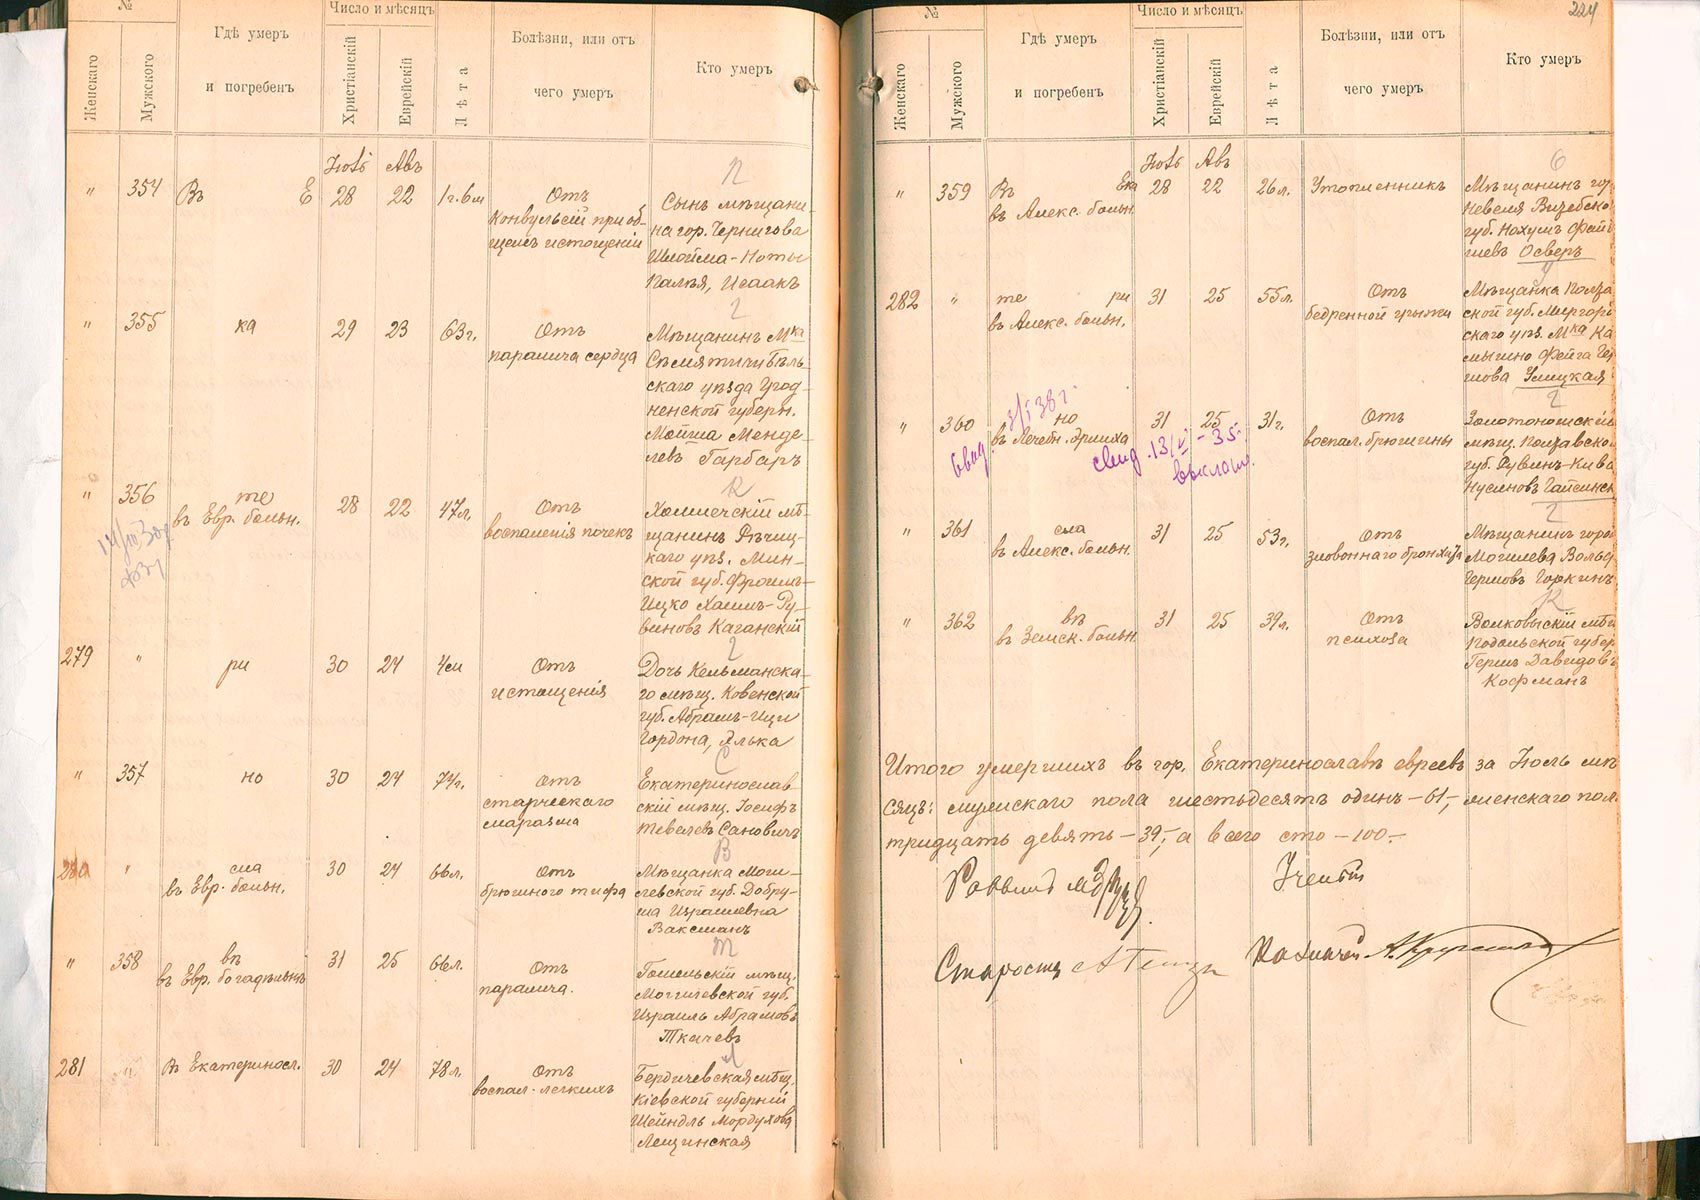 №
Женскаго
Мужского
Гдѣ умеръ
и погребенъ
Число и мѣсяцъ
Христіанскій
Еврейскій
Лѣта
Болѣзни, или отъ
чего умеръ
Кто умеръ
Іюль Авъ
" 354 Въ Е 28 22 1г.6м
Отъ
конвульсій при об-
щемъ истощеніи
П
Сынъ мѣщани-
на гор. Чернигова
Шлойма-Ноты
Палѣя, Исаакъ
" 355 ка 29 23 63г.
Отъ
паралича сердца
Г
Мѣщанинъ Мка
Сѣмятичи Бѣль-
скаго уѣзда Грод-
ненской губерн.
Мойша Менде-
левъ Гарбаръ
" 356 те
въ Евр. больн. 28 22 47л.
Отъ
воспаленія почекъ
К
Холмечскій мѣ-
щанинъ Рѣчиц-
каго уѣз. Мин-
ской губ. Фроимъ-
Ицко Хаимъ-Ру-
виновъ Каганскій
279 " ри 30 24 4м
Отъ
истощенія
Г
Дочь Кельманска-
го мѣщ. Ковенской
губ. Абрамъ-Ици
Гордона, Элька
" 357 но 30 24 74г.
Отъ
старческаго
маразма
С
Екатеринослав-
скій мѣщ. Іосифъ
Тевелевъ Сановичъ
280 " сла
въ Евр. больн. 30 24 66л.
Отъ
брюшного тифа
В
Мѣщанка Моги-
левской губ. Добру-
ша Израилевна
Ваксманъ
" 358 въ
въ Евр. богадѣльнѣ 31 25 66л.
Отъ
паралича.
Т
Гомельскій мѣщ.
Могилевской губ.
Израиль Абрамовъ
Ткачевъ
281 " Въ Екатеринос. 30 24 78л.
Отъ
воспал. легкихъ
Л
Бердичевская мѣщ.
Кіевской губерніи
Шейндль Мордухова
Лещинская
224
№
Женскаго
Мужского
Гдѣ умеръ
и погребенъ
Число и мѣсяцъ
Христіанскій
Еврейскій
Лѣта
Болѣзни, или отъ
чего умеръ
Кто умеръ
Іюль Авъ
" 359 Въ Ека
въ Алекс. больн. 28 22 26л. Утопленникъ
О
Мѣщанинъ гор.
Невеля Витебско
губ. Нохумъ Фай
шевъ Осверъ
282 " те ри
въ Алекс. больн. 31 25 55л.
Отъ
бедренной грыжи
У
Мѣщанка Полта
ской губ. Миргоро
скаго уѣз. Мка Ка
мышно Фейга Гер
шова Улицкая
" 360 но
въ Лечебн. 31 25 31г.
Отъ
воспал. брюшины
Г
Золотоношскій
мѣщ. Полтавско
губ. Рувинъ-Кива
Нусиновъ Гайсинск
" 361 сла
въ Алекс. больн. 31 25 53г.
Отъ
зловоннаго бронхита
Г
Мѣщанинъ горо
Могилева Вольф
Гершовъ Горкинъ
" 362 въ
въ Земск. больн. 31 25 39л.
Отъ
психоза
К
Волковыскій мѣщ
Подольской губер
Гершъ Давидовъ
Кофманъ
Итого умершихъ въ гор. Екатеринославѣ евреевъ за Іюль мѣ
сяцъ: мужскаго пола шестьдесятъ одинъ -61-, женскаго пол
тридцать девять -39-, а всего сто -100-
Раввинъ
Ученый
Староста
Казначей